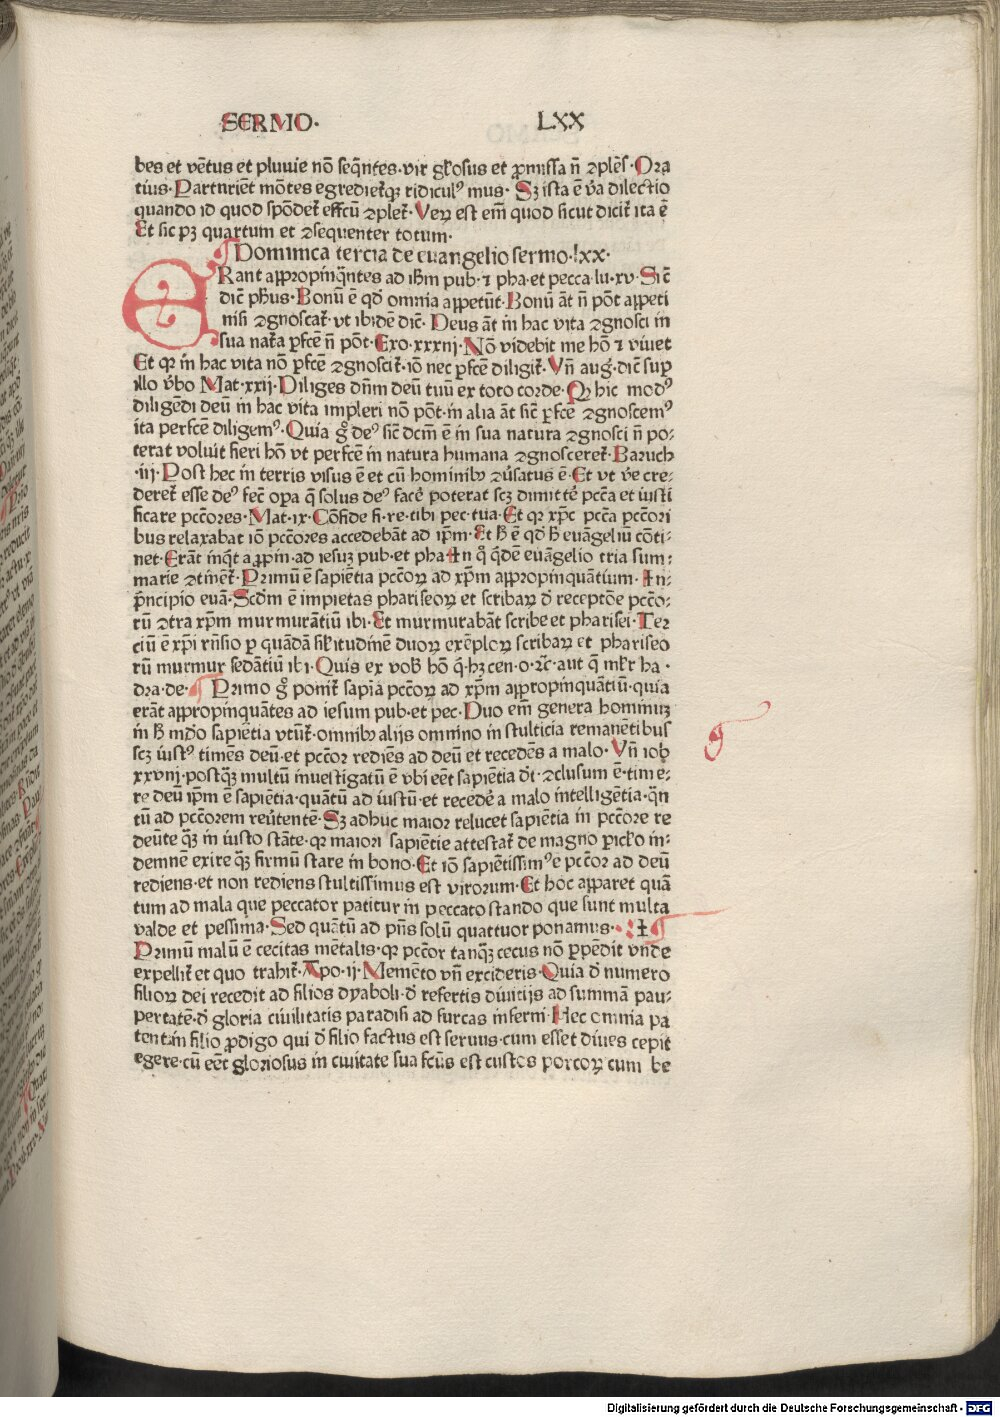 SERMO· LXX
bes et vētus et pluuie nō seq̄ntes·vir gl̄osus et ꝓmissa n̄ ꝯplēs·Ora
tius·Parturiēt mōtes egrediet᷑qꝫ ridiculꝰ mus· Sꝫ ista ē v̄a dilectio
quando id quod spōdet᷑ effcū ꝯplet᷑·Veꝝ est em̄ quod sicut dicit᷑ ita ē
Et sic pꝫ quartum et ꝯsequenter totum·
¶Dominica tercia de euangelio sermo·lxx·
ERant appropinq̄ntes ad ihm pub·⁊ pha·et pecca·lu·xv·Sic̄
dic̄ ph̄us·Bonū ē qd̄ omnia appetūt·Bonū āt n̄ pōt appeti
nisi ꝯgnoscat᷑·vt ibidē dic̄·Deus āt in hac vita ꝯgnosci in
sua nat̄a ꝑfcē n̄ pōt·Exo·xxxiij·Nō videbit me hō ⁊ viuet
Et qꝛ in hac vita nō ꝑfcē ꝯgnoscit᷑·iō nec ꝑfcē diligit᷑·Vn̄ aug·dic̄ sup
illo v̄bo Mat·xxij·Diliges dn̄m deū tuū ex toto corde·Qꝛ hic modꝰ
diligēdi deū in hac vita impleri nō pōt·in alia āt sic̄ ꝑfcē ꝯgnoscemꝰ
ita perfcē diligemꝰ·Quia g̊ deꝰ sic̄ dcm̄ ē in sua natura ꝯgnosci n̄ po⸗
terat voluit fieri hō vt perfcē in natura humana ꝯgnosceret᷑·Baruch
·iij·Post hec in terris visus ē et cū hominibꝫ ꝯūsatus ē·Et vt v̄e cre⸗
deret᷑ esse deꝰ fec̄ oꝑa q̄ solus deꝰ facē poterat scꝫ dimittē pccā et iusti
ficare pccōres·Mat·ix·Cōfide fi·re·tibi pec·tua·Et qꝛ xp̄c pccā pccōri
bus relaxabat iō pccōres accedebāt ad ip̄m·Et ħ ē qd̄ ħ euāgeliū cōti⸗
net·Erāt inq̄t appm̄·ad iesuꝫ pub·et pha·In q̊ q̄dē euāgelio tria sum⸗
marie ꝯtinēt᷑·Primū ē sapiētia pccōꝝ ad xp̄m appropinquātium·In⸗
p̄ncipio euā·Scdm̄ ē impietas phariseoꝝ et scribaꝝ d̄ receptōe pccō⸗
rū ꝯtra xp̄m murmurātiū ibi·Et murmurabāt scribe et pharisei·Ter
ciū ē xp̄i rn̄sio ꝑ quādā sil̄itudinē duoꝝ exēploꝝ scribaꝝ et phariseo
rū murmur sedātiū ibi·Quis ex vob̄ hō q̄·hꝫ cen·o·⁊c̄·aut q̄ ml̄r ha·
dra·de·¶ Primo g̊ ponit᷑ sapīa pccōꝝ ad xp̄m appropinquātiū·quia
erāt appropinquātes ad iesum pub·et pec·Duo em̄ genera hominuꝫ
in ħ mdo sapiētia vtūt᷑·omnibꝫ alijs omnino in stulticia remanētibus
scꝫ iustꝰ timēs deū·et pccōr rediēs ad deū et recedēs a malo·Vn̄ iob
xxviij·postq̄ꝫ multū inuestigatū ē vbi eēt sapiētia dr̄·ꝯclusum ē·time⸗
re deū ip̄m ē sapiētia·quātū ad iustū·et recedē a malo intelligētia·q̄n
tū ad pccōrem reūtentē·Sꝫ adhuc maior relucet sapiētia in pccōre re
deūte q̄ꝫ in iusto stāte·qꝛ maiori sapiētie attestat᷑ de magno ꝑicl̄o in⸗
demnē exire q̄ꝫ firmū stare in bono·Et iō sapiētissimꝰ ē pccōr ad deū
rediens·et non rediens stultissimus est virorum·Et hoc apparet quā
tum ad mala que peccator patitur in peccato stando que sunt multa
valde et pessima·Sed quātū ad pn̄s solū quattuor ponamus·
Primū malū ē cecitas mētalis·qꝛ pccōr tanq̄ꝫ cecus nō ꝑpēdit vnde
expellit᷑ et quo trahit᷑·Apo·ij·Memēto vn̄ excideris·Quia d̄ numero
filioꝝ dei recedit ad filios dyaboli·d̄ refertis diuitijs ad summā pau⸗
pertatē·d̄ gloria ciuilitatis paradisi ad furcas inferni·Hec omnia pa
tent in filio ꝓdigo qui d̄ filio factus est seruus·cum esset diues cepit
egere·cū eēt gloriosus in ciuitate sua fcūs est custos porcoꝝ cum be
Digitalisierung gefördert durch die Deutsche Forschungsgemeinschaft - DFG